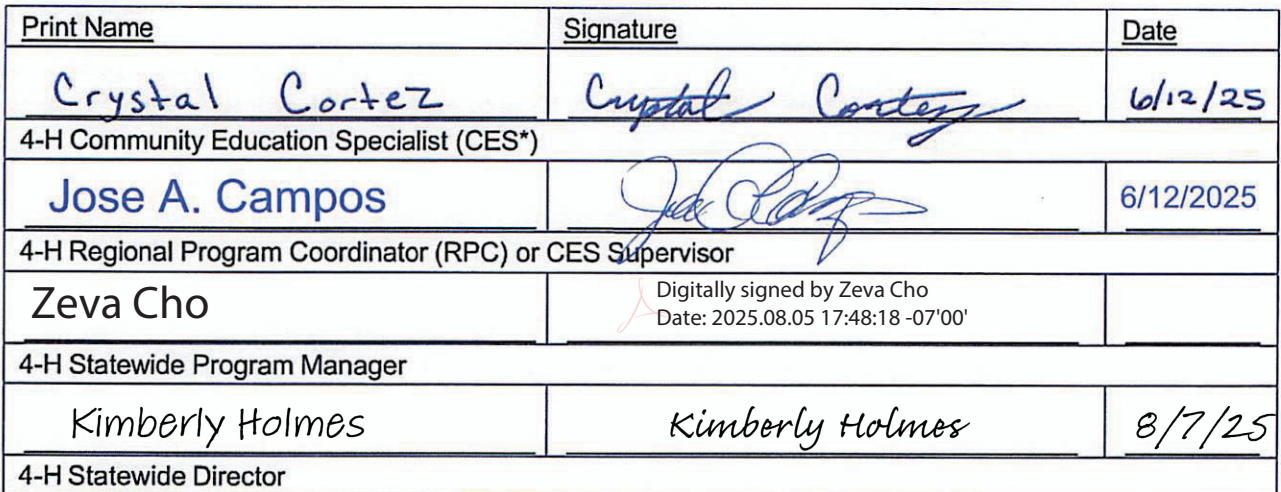 Print Name Signature Date
Crystal Cortez Crystal Cortez 6/12/25
4-H Community Education Specialist (CES*)
Jose A. Campos 6/12/2025
4-H Regional Program Coordinator (RPC) or CES Supervisor
Zeva Cho Digitally signed by Zeva Cho
Date: 2025.08.05 17:48:18 -07'00'
4-H Statewide Program Manager
Kimberly Holmes Kimberly Holmes 8/7/25
4-H Statewide Director